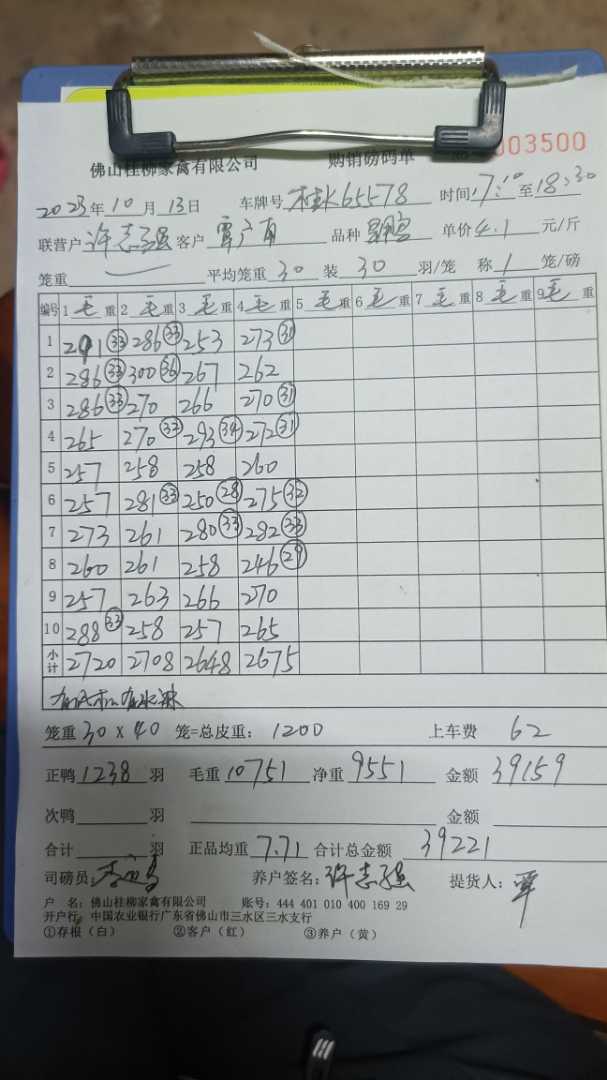 佛山桂柳家禽有限公司 购销磅码单 003500
2023年10月13日 车牌号 桂K65578 时间17:10至18:30
联营户 许志强 客户 品种 单价4.1元/斤
笼重 平均笼重30装30羽/笼 称1笼/磅
编号 1毛重 2毛重 3毛重 4毛重 5毛重 6毛重 7毛重 8毛重 9毛重
1 291㉝ 286㉝ 253 273㉛
2 286㉝ 300㊱ 267 262
3 286㉝ 270 266 270㉛
4 265 270㉜ 293㉞ 272㉛
5 257 258 258 260
6 257 281㉝ 250㉘ 275㉜
7 273 261 280㉝ 282㉝
8 260 261 258 246㉙
9 257 263 266 270
10 288㉝ 258 257 265
小计 2720 2708 2648 2675
笼重30×40笼=总皮重:1200 上车费 62
正鸭1238羽 毛重10751净重9551金额39159
次鸭 羽 金额
合计 羽 正品均重7.71合计总金额39221
司磅员: 养户签名:许志强 提货人:覃
户 名:佛山桂柳家禽有限公司 账号:444 401 010 400 169 29
开户行:中国农业银行广东省佛山市三水区三水支行
①存根(白) ②客户(红) ③养户(黄)